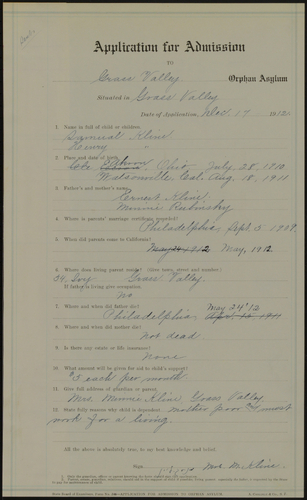 Application for Admission
TO
Grass Valley Orphan Asylum
Situated in Grass Valley
Date of Application, Dec. 17 1912
1. Name in full of child or children.
Kline
Henry "
2. Place and date of birth.
Ohio, July 28, 1910
Watsonville, Cal. Aug. 18, 1911
3. Father's and mother's name?
Kline
Minnie Rubinsky
4. Where is parents' marriage certificate recorded?
Philadelphia, Sept. 5, 1909.
5. When did parents come to California?
May 24 1912 May, 1912.
6. Where does living parent reside? (Give town, street and number.)
Grass Valley.
If father is living give occupation.
No
7. Where and when did father die? May 24" 12
Philadelphia,
8. Where and when did mother die?
not dead
9. Is there any estate or life insurance?
None
10. What amount will be given for aid to child's support?
$3 each per month
11. Give full address of guardian or parent.
Mrs. Minnie Kline Grass Valley
12. State fully reasons why child is dependent. mother poor and must
work for a living.
All the above is absolutely true, to my best knowledge and belief.
Sign Mrs. M. Kline.